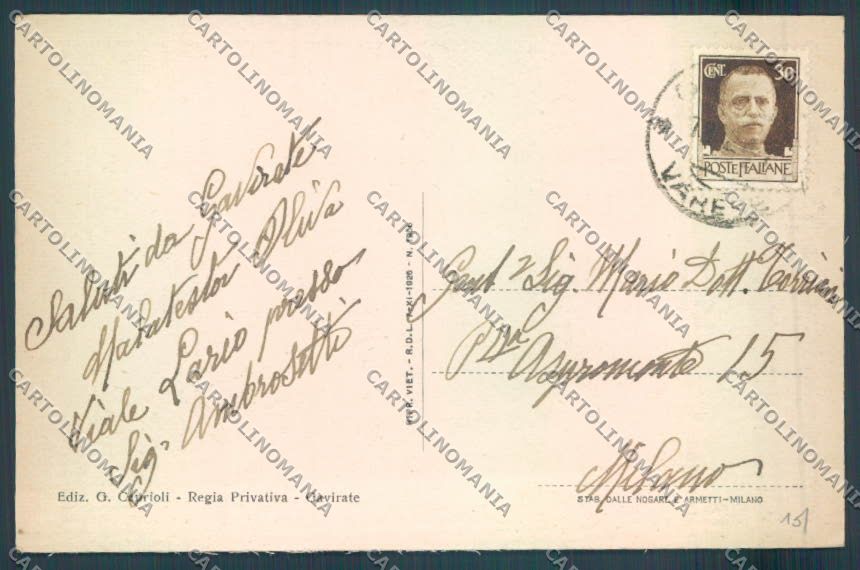 Saluti da Gavirate
Malatesta Oliva
Viale Lario presso
Sig. Ambrosetti
Ediz. G. Caprioli - Regia Privativa - Gavirate
RIPR. VIET. - R.D.L. 7-XI-1925 - N.
CENT. 30
POSTE ITALIANE
VARE
Gent Sig Mario Dott.
Aspromonte 15
Milano
STAB. DALLE NOGARE E ARMETTI - MILANO
15/
CARTOLINOMANIA